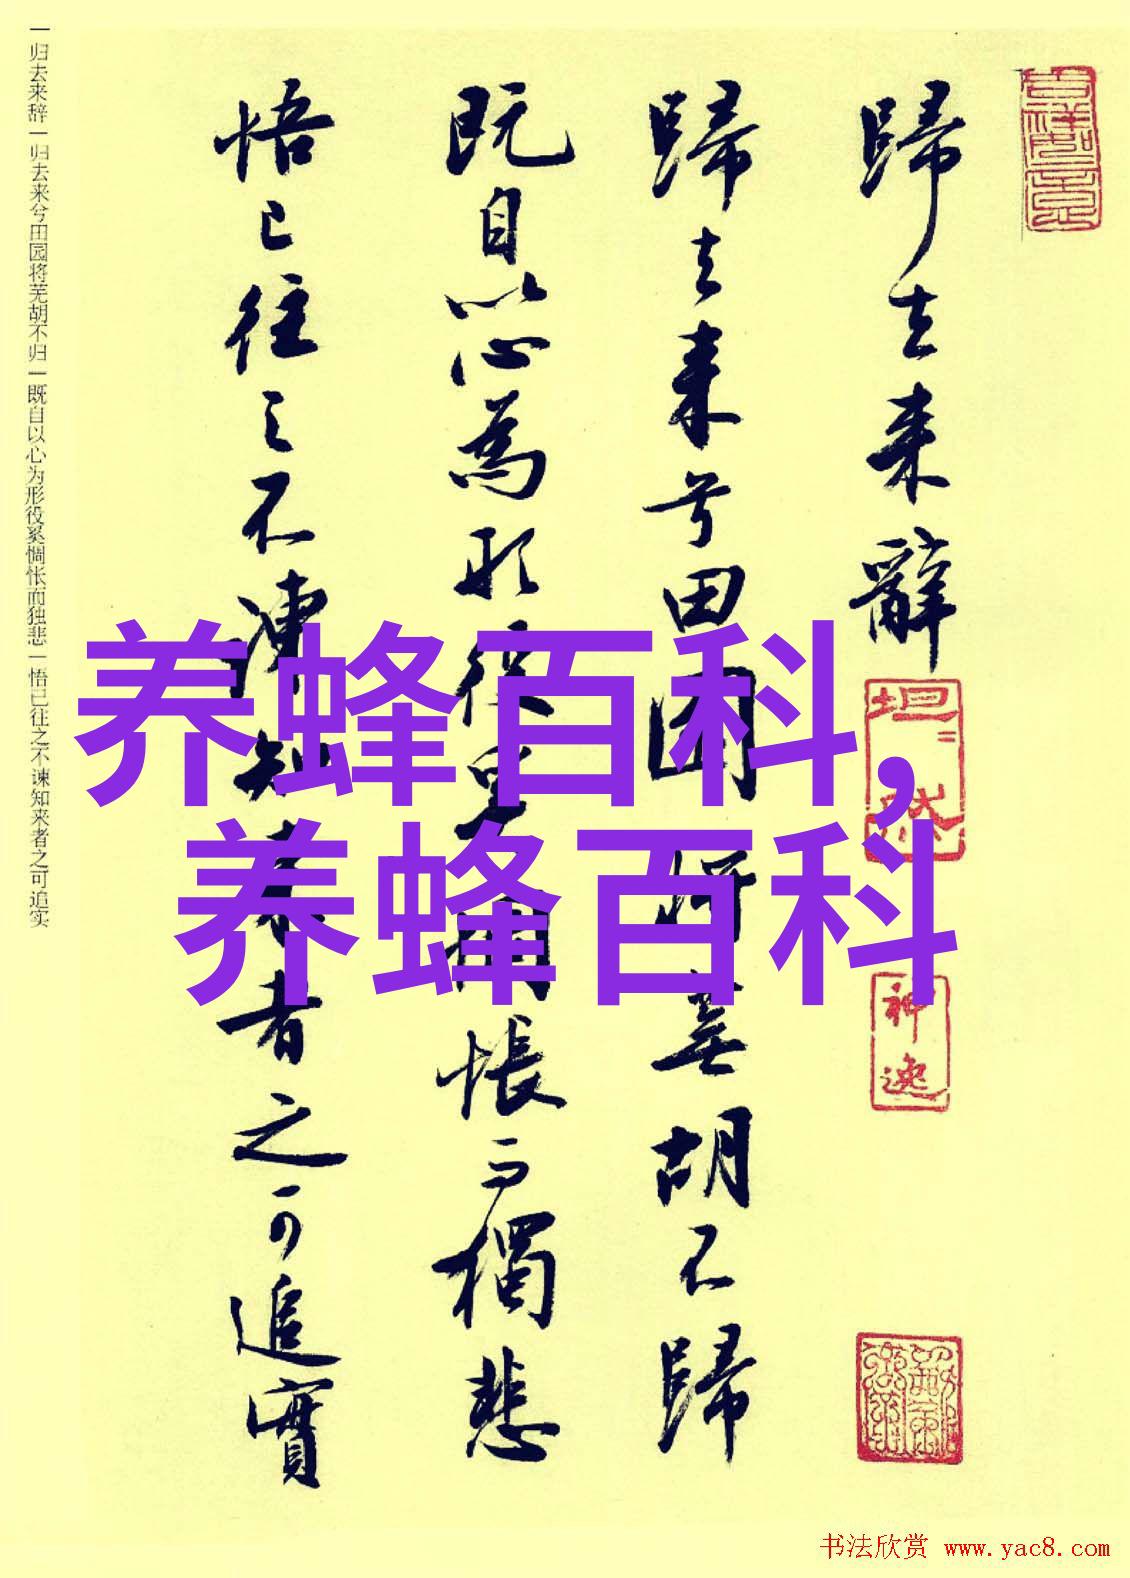 歸去来辭
歸去来兮田園将蕪胡不歸
既自以心為形役奚惆悵而獨悲
悟已往之不諫知来者之可追實
一归去来辞一归去来兮田园将芜胡不归一既自以心为形役奚惆怅而独悲一悟已往之不谏知来者之可追实
养蜂百科,
养蜂百科
坦然
神逸
书法欣赏 www.yac8.com